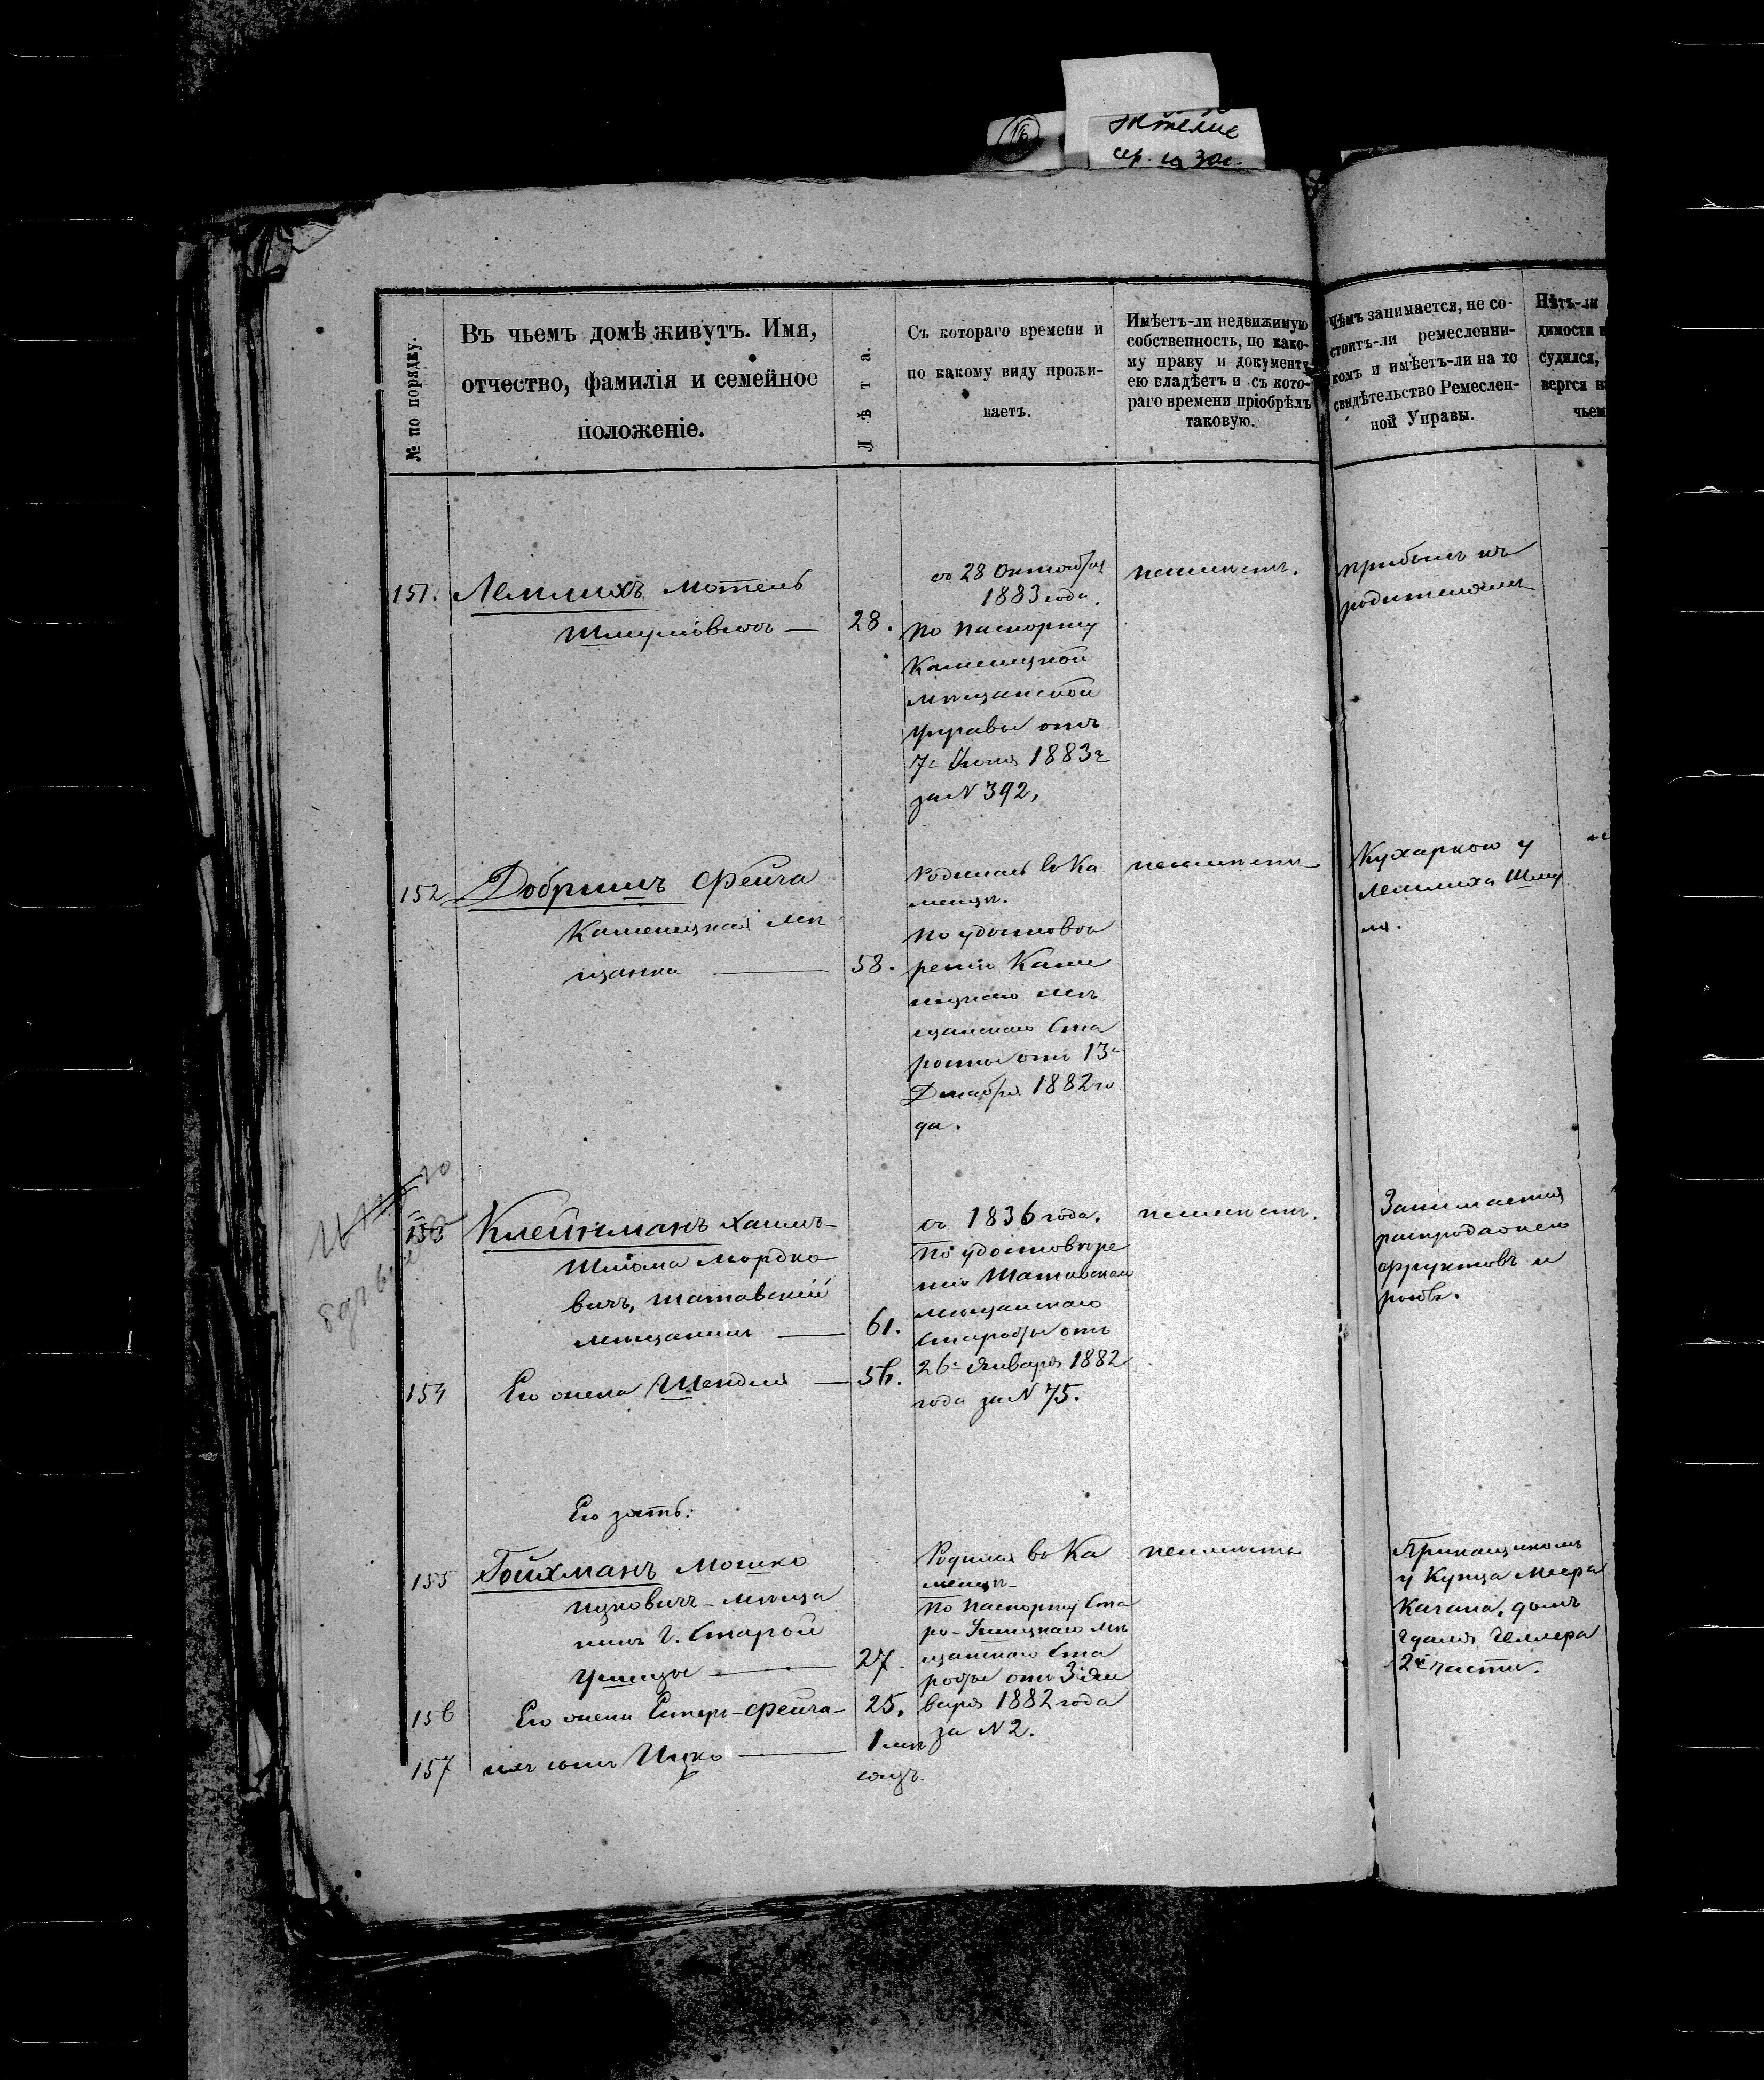 жтелие
№ по порядку.
Въ чьемъ домѣ живутъ. Имя,
отчество, фамилія и семейное
положеніе.
Лѣта.
Съ котораго времени и
по какому виду прожи-
ваетъ.
Имѣетъ-ли недвижимую
собственность, по како-
му праву и документу
ею владѣетъ и съ кото-
раго времени пріобрѣлъ
таковую.
Чѣмъ занимается, не со-
стоитъ-ли ремесленни-
комъ и имѣетъ-ли на то
свидѣтельство Ремеслен-
ной Управы.
Нѣтъ-ли
димости
судился,
вергся
чьем
151. Лемлихъ Мотель
Шмулiовичъ — 28.
съ 28 Октября
1883 года.
По паспорту
Каменецкой
мѣщанской
управы отъ
7г Июня 1883г
за N 392,
неимѣетъ.
прибылъ къ
родителямъ
152 Добришъ Фейга
Каменецкая мѣ
щанка — 58.
Родилась въ Ка
менцѣ.
По удостовѣ
ренiю Каме
нецкаго мѣ
щанскаго Ста
росты отъ 13г
Декабря 1882 го
да.
неимѣетъ
Кухаркою у
Лемлиха Шму
ля.
153 Клейнманъ Хаимъ-
Шлiома Мордко
вичъ, Шатавскiй
мѣщанинъ — 61.
154 Его жена Шендля — 56.
съ 1836 года.
По удостовѣре
нiю Шатавскаго
мѣщанскаго
Старосты отъ
26г Января 1882
года за N 75.
неимѣетъ.
Занимается
распродажею
фруктовъ и
рыбъ.
Его зять:
155 Гойхманъ Мошко
Ицковичъ - мѣща
нинъ г. Старой
Ушицы — 27.
156 Его жена Естеръ-Фейга — 25.
157 ихъ сынъ Ицко — 1 мѣ
сяцъ.
Родился въ Ка
менцѣ
По паспорту Ста
ро-Ушицкаго мѣ
щанскаго Ста
росты отъ 3г Ян
варя 1882 года
за N 2.
неимѣетъ
Прикащикомъ
у Купца Меера
Кагана, домъ
Гдаля Геллера
2й части.